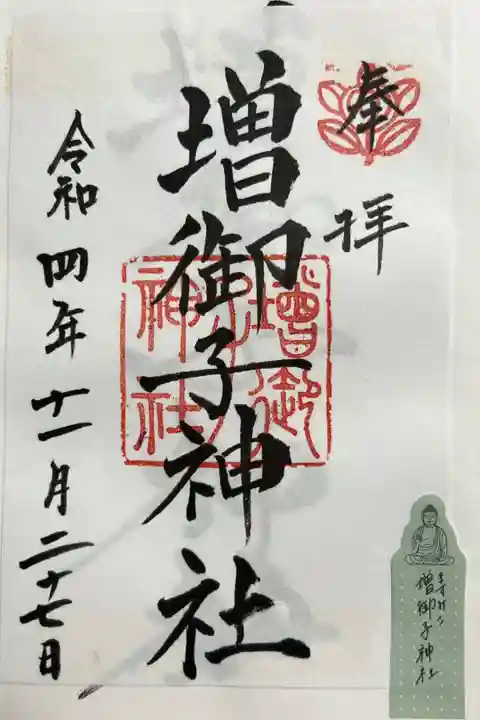 奉
拝
増御子神社
増御子神社
令和四年十一月二十七日
ますみこ
増御子神社